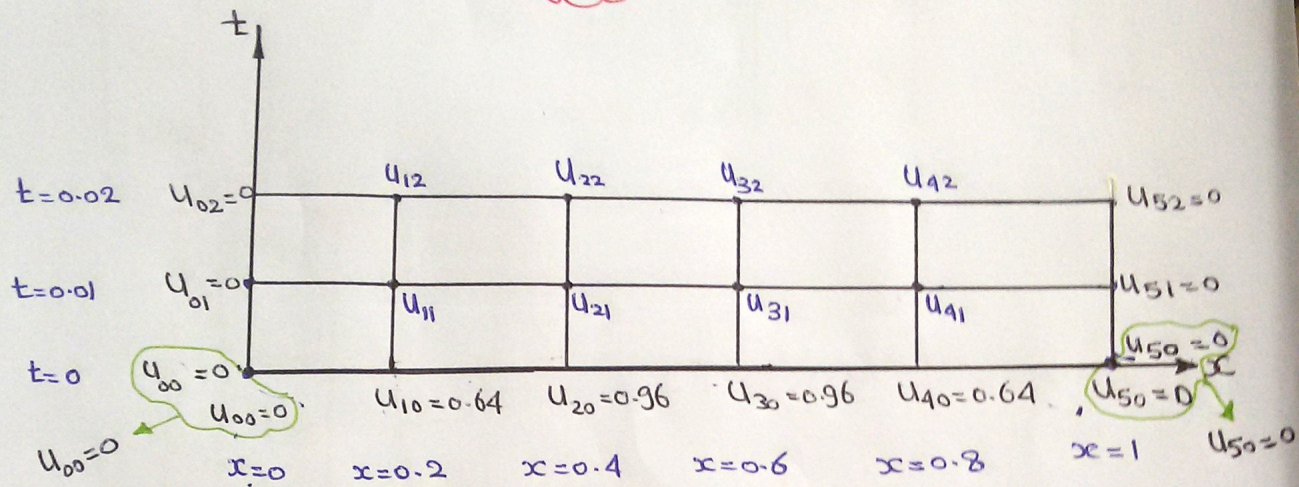 t
u12 u22 u32 u42
t=0.02 u02=0 u52=0
t=0.01 u01=0 u51=0
u11 u21 u31 u41
u50=0
t=0 u00=0 x
u00=0 u10=0.64 u20=0.96 u30=0.96 u40=0.64 u50=0
u00=0 x=0 x=0.2 x=0.4 x=0.6 x=0.8 x=1 u50=0